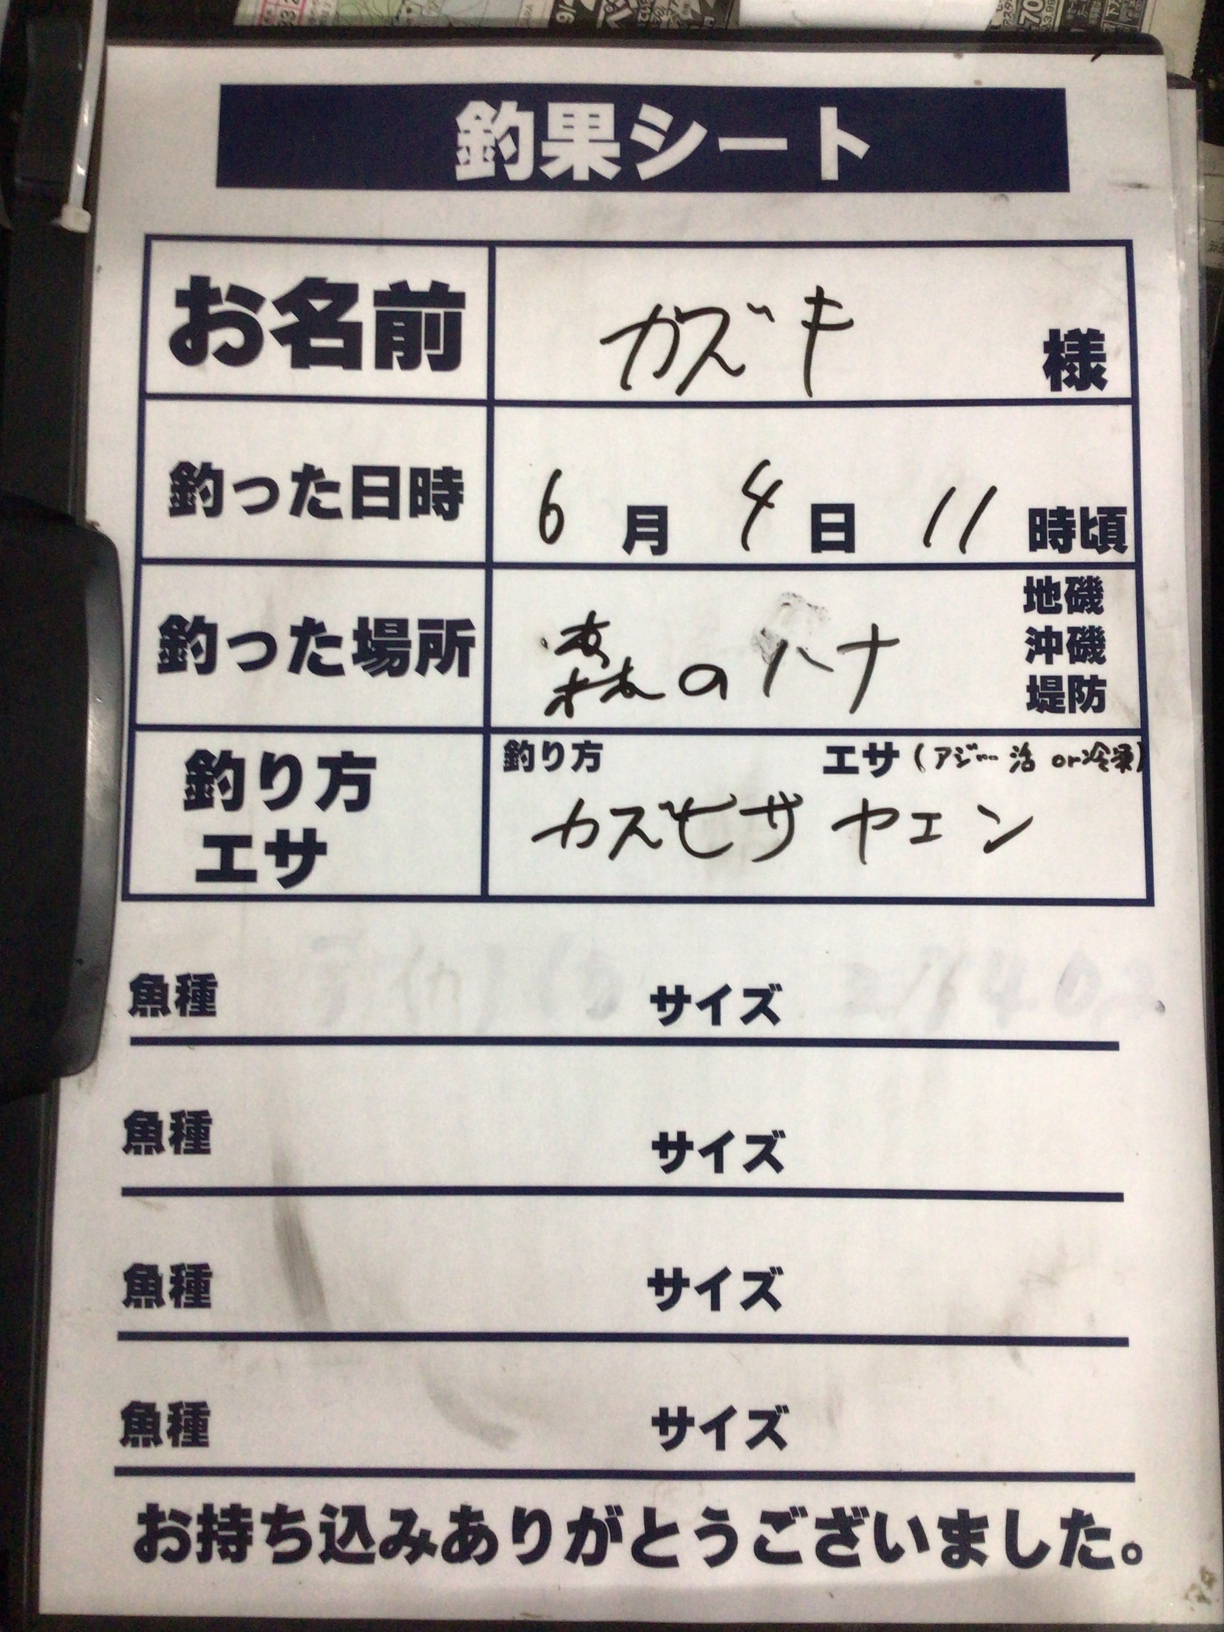 釣果シート
お名前 カズキ 様
釣った日時 6月4日11時頃
釣った場所 森のハナ 地磯
沖磯
堤防
釣り方
エサ
釣り方 エサ(アジ… 活 or 冷凍)
カズヒサ ヤエン
魚種 サイズ
魚種 サイズ
魚種 サイズ
魚種 サイズ
お持ち込みありがとうございました。